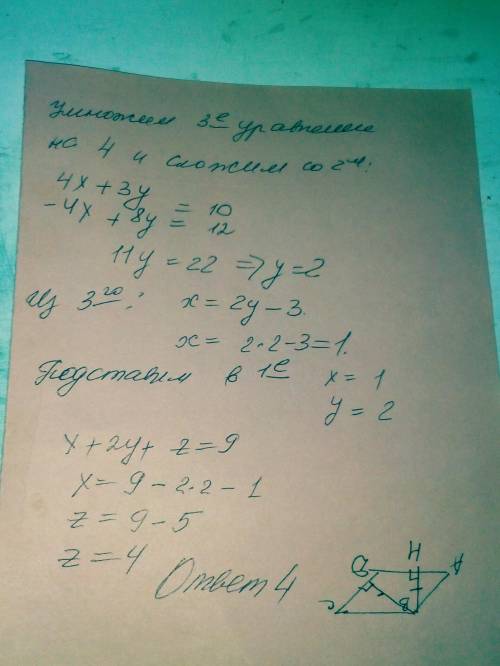 Умножим 3е уравнение
на 4 и сложим со 2м:
4x + 3y = 10
-4x + 8y = 12
11y = 22 => y = 2
Из 3го: x = 2y - 3.
x = 2·2-3=1.
Подставим в 1е x = 1
y = 2
x + 2y + z = 9
x = 9 - 2·2 - 1
z = 9 - 5
z = 4
Ответ 4
H
D A
C B